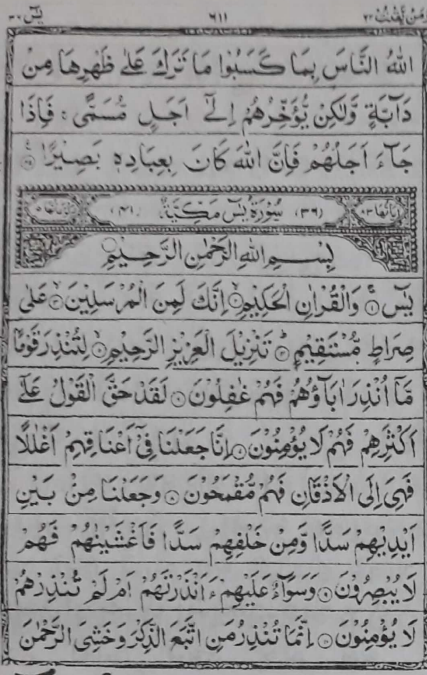 یٰسٓ ۳۶ ۶۱۱ ومن یقنت ۲۲
اللّٰهُ النَّاسَ بِمَا كَسَبُوْا مَا تَرَكَ عَلٰى ظَهْرِهَا مِنْ
دَآبَّةٍ وَّلٰكِنْ يُّؤَخِّرُهُمْ اِلٰٓى اَجَلٍ مُّسَمًّى ۚ فَاِذَا
جَآءَ اَجَلُهُمْ فَاِنَّ اللّٰهَ كَانَ بِعِبَادِهٖ بَصِيْرًا
(۳۶) سُوْرَةُ يٰسٓ مَكِّيَّةٌ (۴۱)
بِسْمِ اللّٰهِ الرَّحْمٰنِ الرَّحِيْمِ
يٰسٓ ۚ وَالْقُرْاٰنِ الْحَكِيْمِ ۙ اِنَّكَ لَمِنَ الْمُرْسَلِيْنَ ۙ عَلٰى
صِرَاطٍ مُّسْتَقِيْمٍ ؕ تَنْزِيْلَ الْعَزِيْزِ الرَّحِيْمِ ۙ لِتُنْذِرَ قَوْمًا
مَّاۤ اُنْذِرَ اٰبَآؤُهُمْ فَهُمْ غٰفِلُوْنَ ۝ لَقَدْ حَقَّ الْقَوْلُ عَلٰٓى
اَكْثَرِهِمْ فَهُمْ لَا يُؤْمِنُوْنَ ۝ اِنَّا جَعَلْنَا فِيْٓ اَعْنَاقِهِمْ اَغْلٰلًا
فَهِىَ اِلَى الْاَذْقَانِ فَهُمْ مُّقْمَحُوْنَ ۝ وَجَعَلْنَا مِنْۢ بَيْنِ
اَيْدِيْهِمْ سَدًّا وَّمِنْ خَلْفِهِمْ سَدًّا فَاَغْشَيْنٰهُمْ فَهُمْ
لَا يُبْصِرُوْنَ ۝ وَسَوَآءٌ عَلَيْهِمْ ءَاَنْذَرْتَهُمْ اَمْ لَمْ تُنْذِرْهُمْ
لَا يُؤْمِنُوْنَ ۝ اِنَّمَا تُنْذِرُ مَنِ اتَّبَعَ الذِّكْرَ وَخَشِىَ الرَّحْمٰنَ